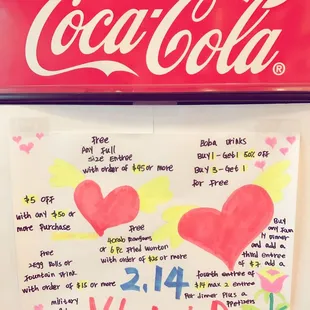 Coca-Cola®
Free
Any Full
Size Entree
with order of $45 or more
Boba Drinks
Buy 1 - Get 1 50% off
Buy 3 - Get 1
for Free
$5 OFF
with any $50 or
more Purchase
Free
or 6 pc Fried Wonton
with order of $26 or more
Free
2 Egg Rolls or
Fountain Drink
with order of $15 or more
2.14
Buy
dinner
and add a
third entree
of $7 add a
fourth entree of
$14 max 2 entree
Per dinner Plus a